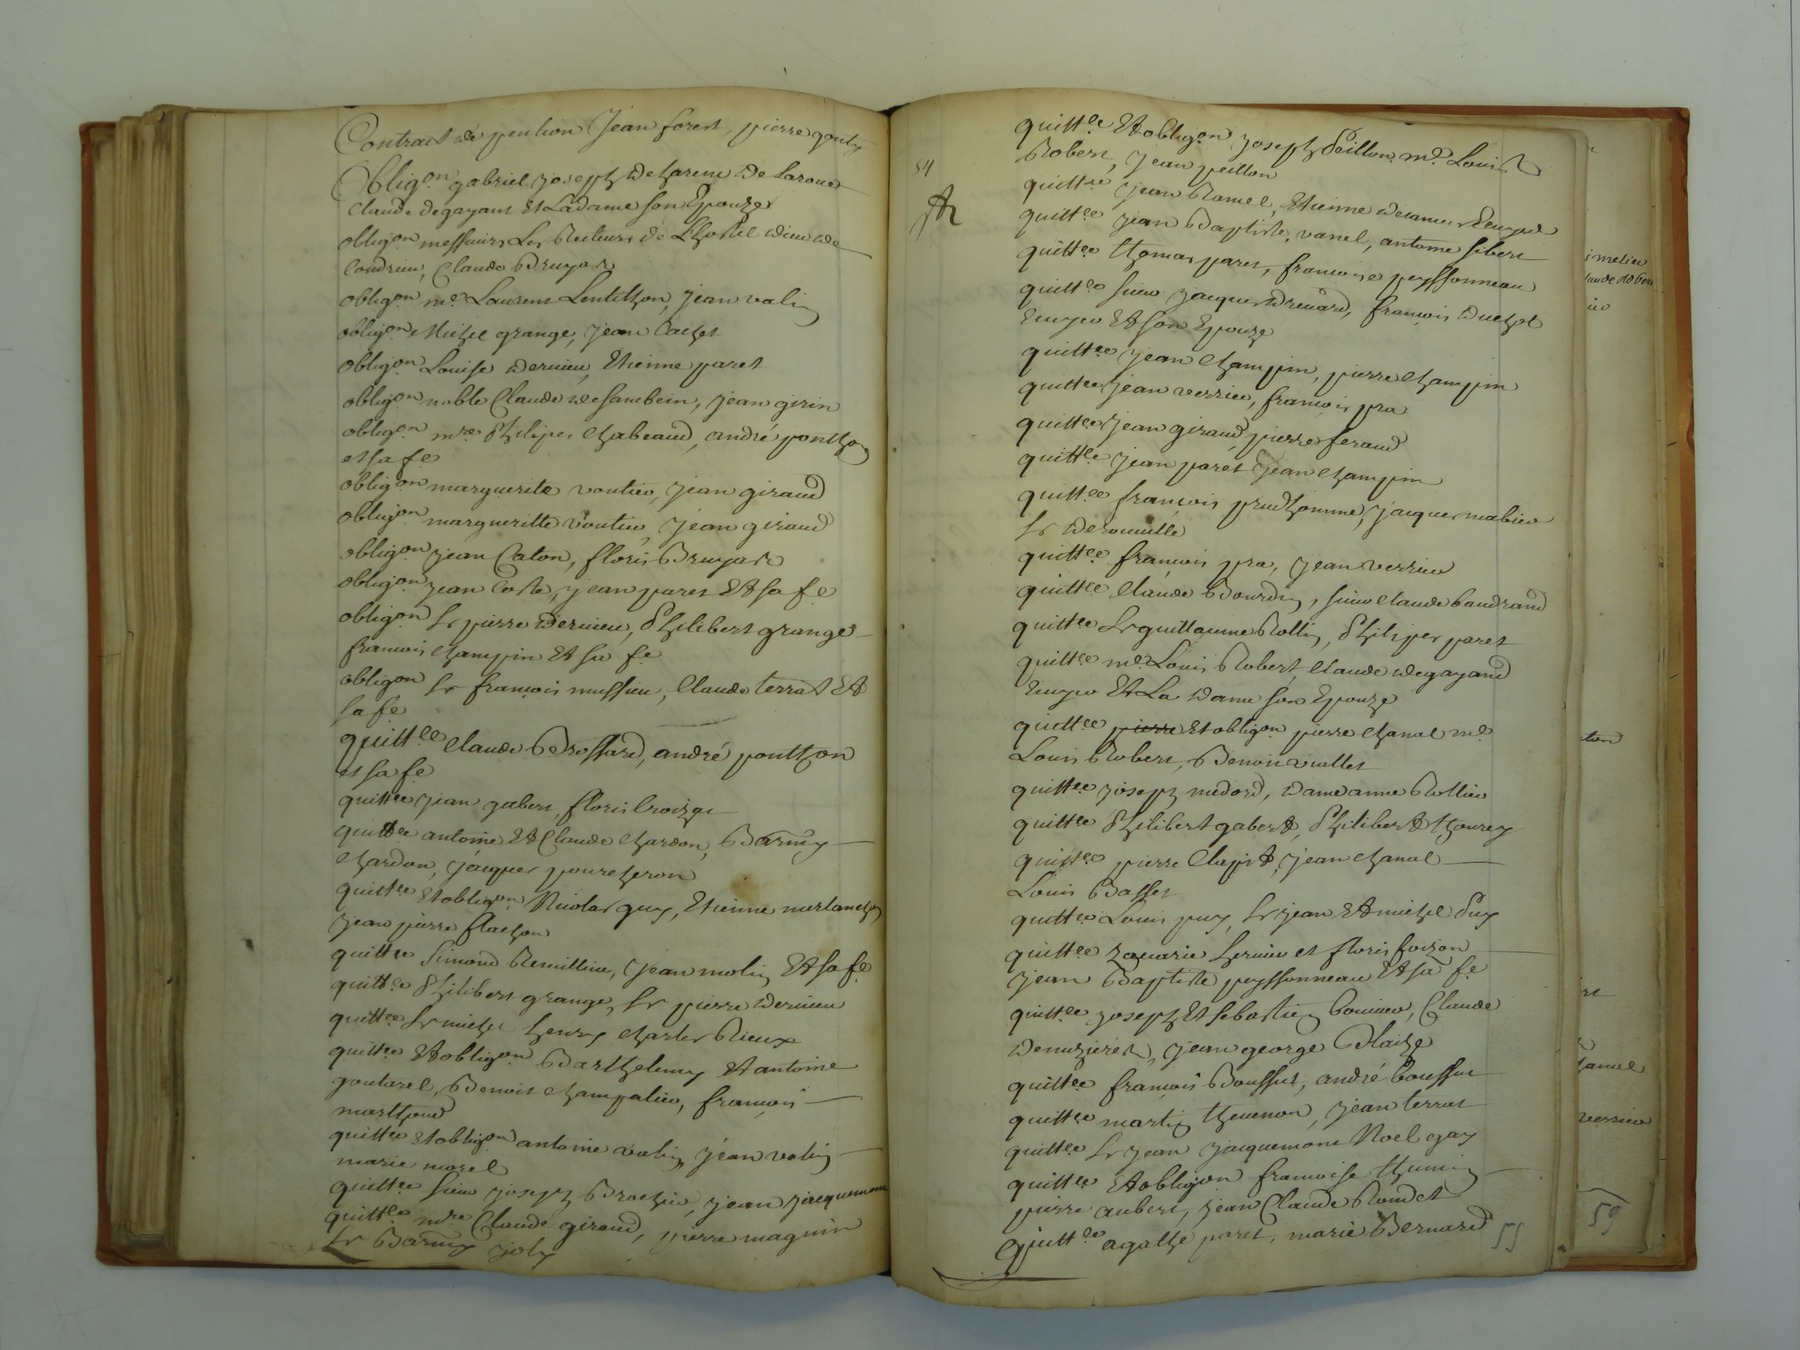 Contract de pention Jean forest, pierre gouty
Obligon gabriel joseph dezarene De Laroue
Claude degayant Et La dame son Epouze
obligon messieurs Les Recteurs de L'hostel dieu de
Condrieu, Claude Bruyas
obligon me Laurens Lentithon, jean valin
obligon Michel grange, jean
obligon Louise dervieu, Etienne paret
obligon noble Claude de sambein, jean girin
obligon mre Philipes Chabeaud, andré ponthon
et sa fe
obligon marguerite voutier, jean giraud
obligon margueritte voutier, jean giraud
obligon jean Caton, floris Bruyas
obligon jean Coste, jean paret Et sa fe
obligon sr pierre dervieu, Philibert grange
francois champin Et sa fe
obligon sr francois mussieu, Claude terrat Et
sa fe
quittce Claude Brossard, andré ponthon
et sa fe
quittce jean gabert, floris
quittce antoine Et Claude chardon, Barmy
chardon, jacques
quittce Et obligon Nicolas guy, Etienne merlanchon
jean pierre flachon
quittce Simond Remillieu, jean molin Et sa fe
quittce Philibert grange, sr pierre dervieu
quittce sr michel henry charles Rieux
quittce Et obligon Barthelemy Et antoine
goutarel, Benoit champalieu, francois
marthoud
quittce Et obligon antoine valin, jean valin
marie morel
quittce sieur joseph Brochier, jean jacquemond
quittce mre Claude giraud, pierre magnin
sr Barmy joly
54
quittce Et obligon joseph Peillon, me Louis
Robert, jean peillon
quittce jean Ramel, Etienne Ecuyer
quittce jean Baptiste vanel, antoine sibert
quittce thomas paret, francoise peyssonneau
quittce sieur jacques drevard, francois duchol
Ecuyer Et son Epouze
quittce jean champin, pierre champin
quittce jean verrier, francois pra
quittce jean giraud, pierre feraud
quittce jean paret jean champin
quittce francois prudhomme, jacques mabieu
sr deromille
quittce francois pra, jean verrier
quittce Claude Bourdin, sieur claude baudrand
quittce sr guillaume Rollin, Philipes paret
quittce me Louis Robert, Claude degayand
Ecuyer Et La dame son Epouze
quittce pierre Et obligon pierre chanal me
Louis Robert, Benoit viallet
quittce joseph medord, dame anne Rollier
quittce Philibert gabert, Philibert thourey
quittce pierre Clapit, jean chanal
Louis Basset
quittce Louis puy, sr jean Et michel Puy
quittce zacarie Lervieu et floris foizon
jean Baptiste peyssonneau Et sa fe
quittce joseph Et sebastien bonieu, Claude
denuzieres, jean george Blaize
quittce francois Boussut, andré boussut
quittce martin thevenon, jean terrat
quittce sr jean jacquemont Noel gay
quittce Et obligon francoise thumin
pierre aubert, jean Claude Rondet
quittce agathe paret, marie Bernard
55
59